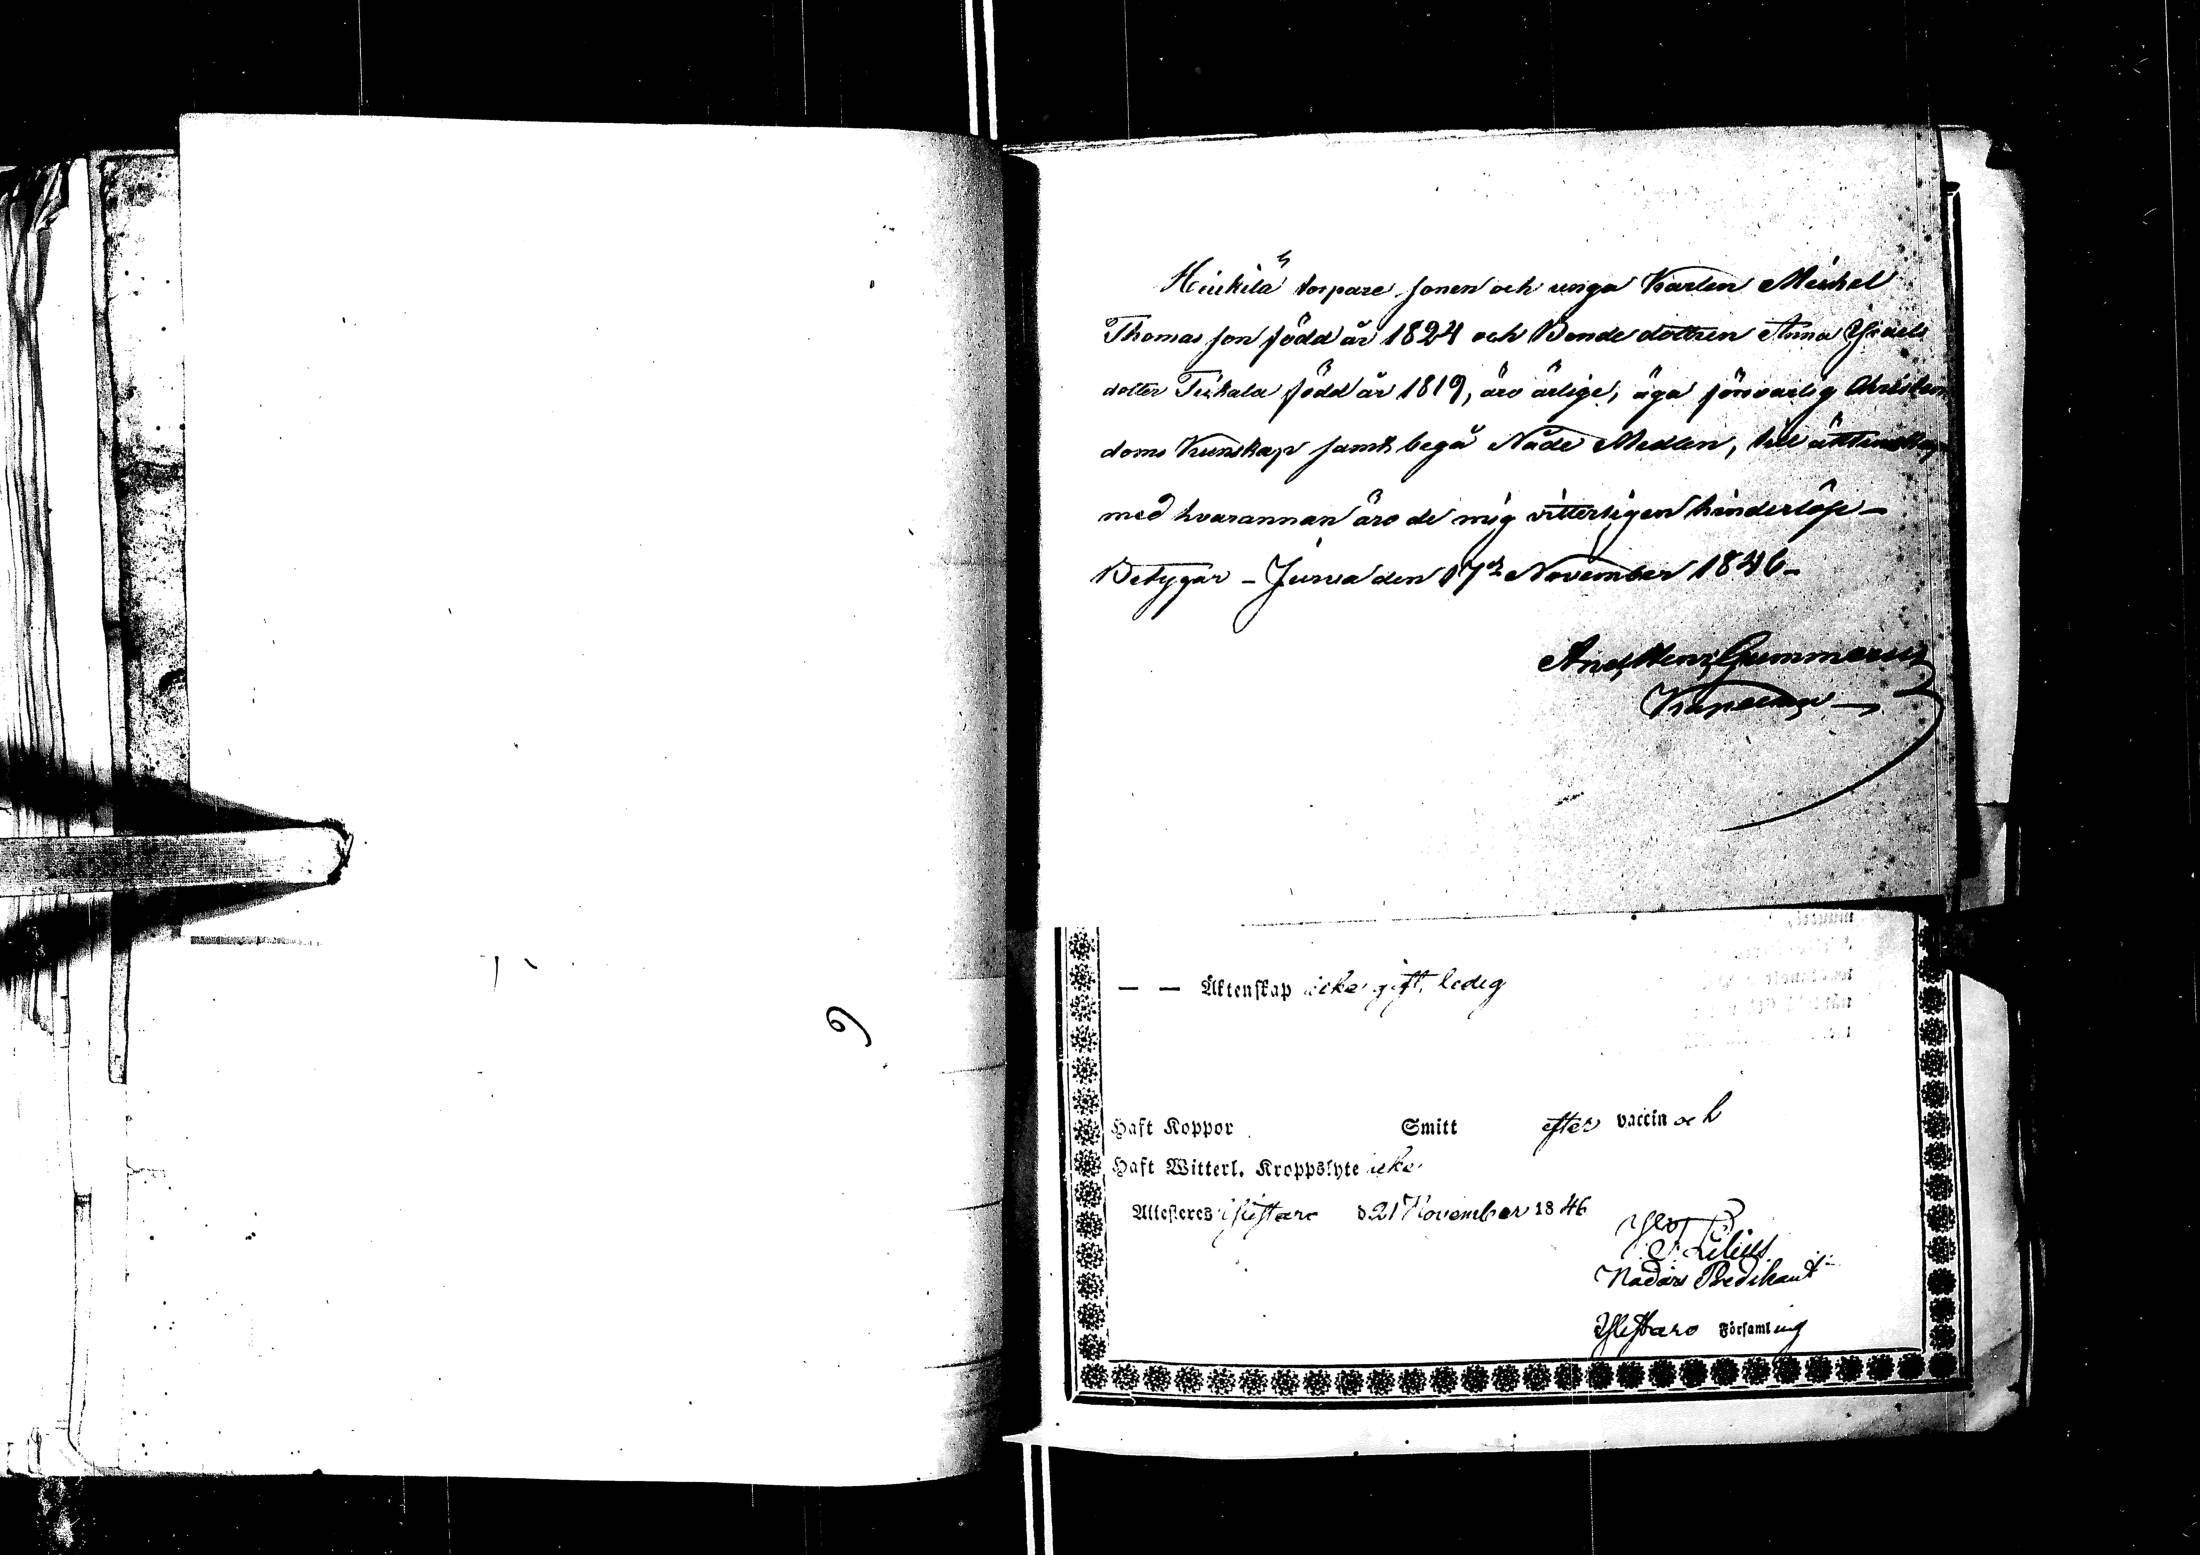 Heikilä torpare sonen och unga Karlen Michel
Thomas son född år 1824 och Bonde dottren Anna Israels
dotter Tiskala född år 1819, äro ärlige, äga försvarlig Christen
doms Kunskap samt begå Nåde Medlen, till äktenskap
med hvarannan äro de mig vitterligen hinderlöse –
Betygar – Jurva den 17de November 1846 –
And. Henr. Gummerus
Kapellan –
9
— — Äktenskap icke gift, ledig
Haft Koppor Smitt efter vaccin och
Haft Witterl. Kroppslyte icke
Attesteres i Ylistaro d 21 November 1846
Lilius
Nådårs Predikant
Ylistaro Församling